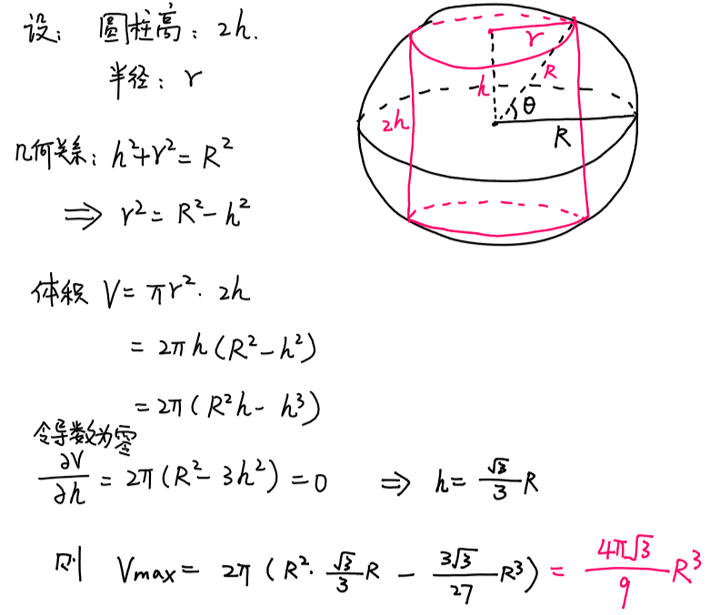 设： 圆柱高：2h.
半径：r
几何关系：h²+r²=R²
⇒ r²=R²-h²
体积 V=πr²·2h
=2πh(R²-h²)
=2π(R²h-h³)
令导数为零
∂V/∂h = 2π(R²-3h²)=0 ⇒ h=√3/3 R
则 Vmax= 2π(R²·√3/3 R - 3√3/27 R³) = 4π√3/9 R³
r
h
R
θ
2h
R